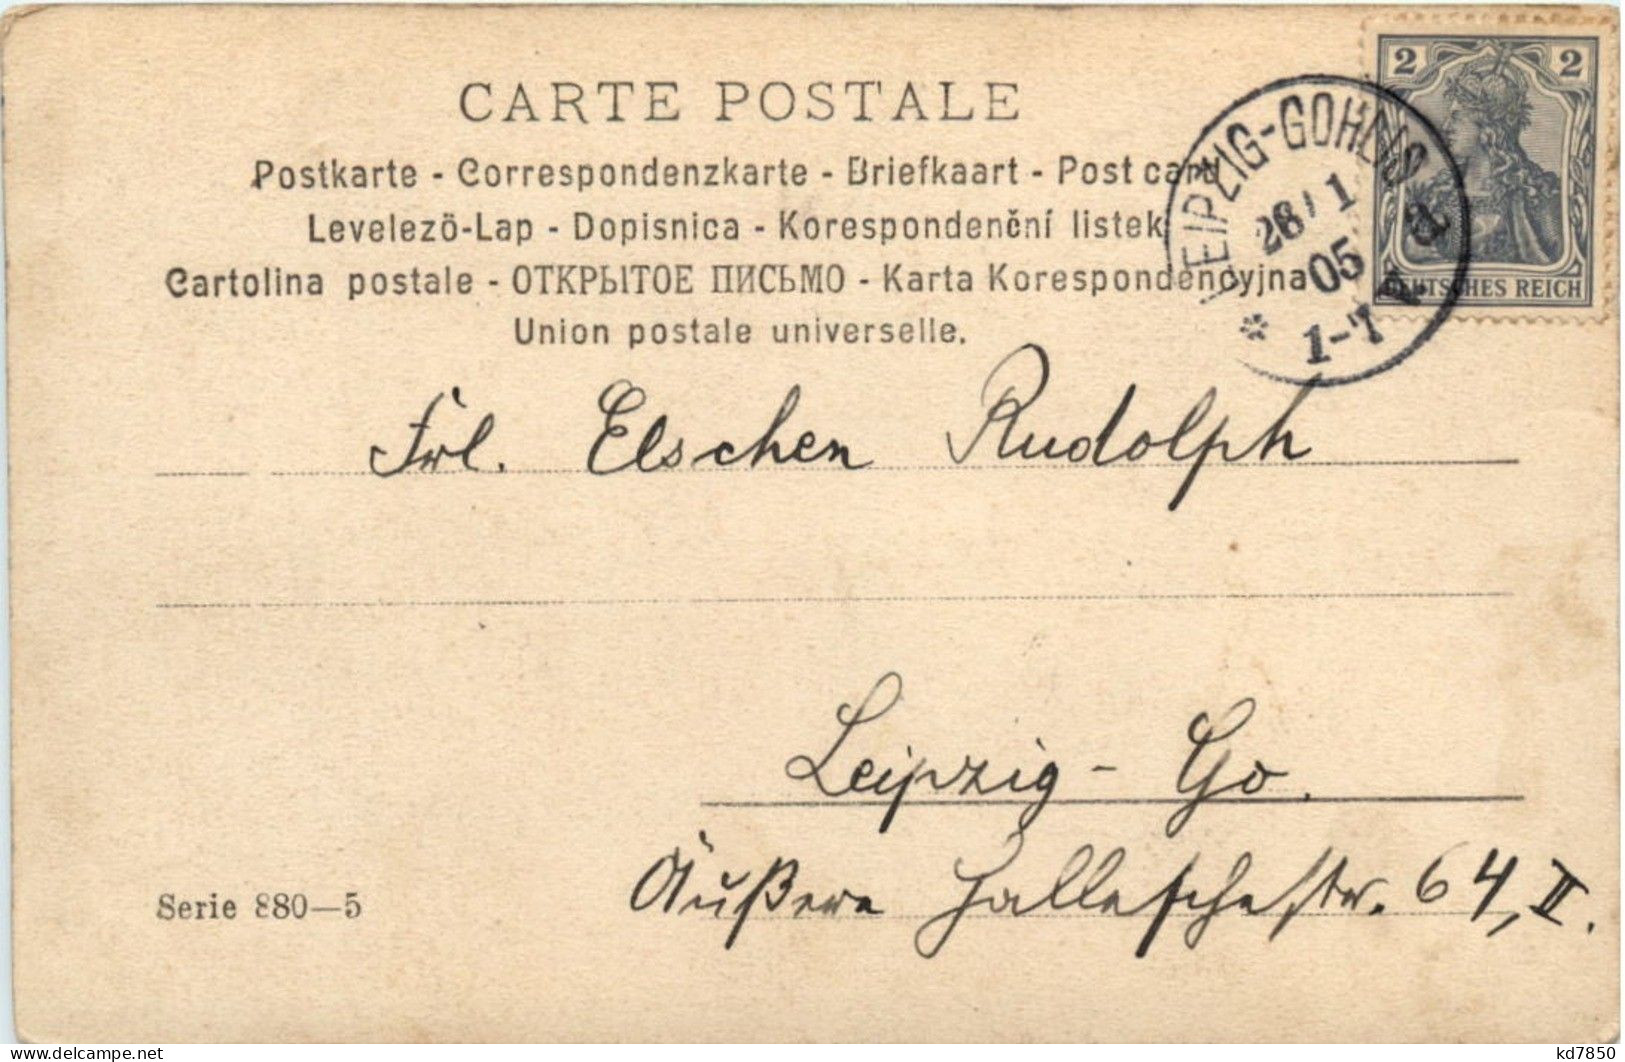 CARTE POSTALE
Postkarte - Correspondenzkarte - Briefkaart - Post card
Levelezö-Lap - Dopisnica - Korespondenční listek
Cartolina postale - ОТКРЫТОЕ ПИСЬМО - Karta Korespondencyjna
Union postale universelle.
2 2
DEUTSCHES REICH
LEIPZIG-GOHLIS
28/1
05
1-7 V
* a
Frl. Elschen Rudolph
Leipzig- Go.
Äußere Hallesche Str. 64, II.
Serie 880-5
kd7850